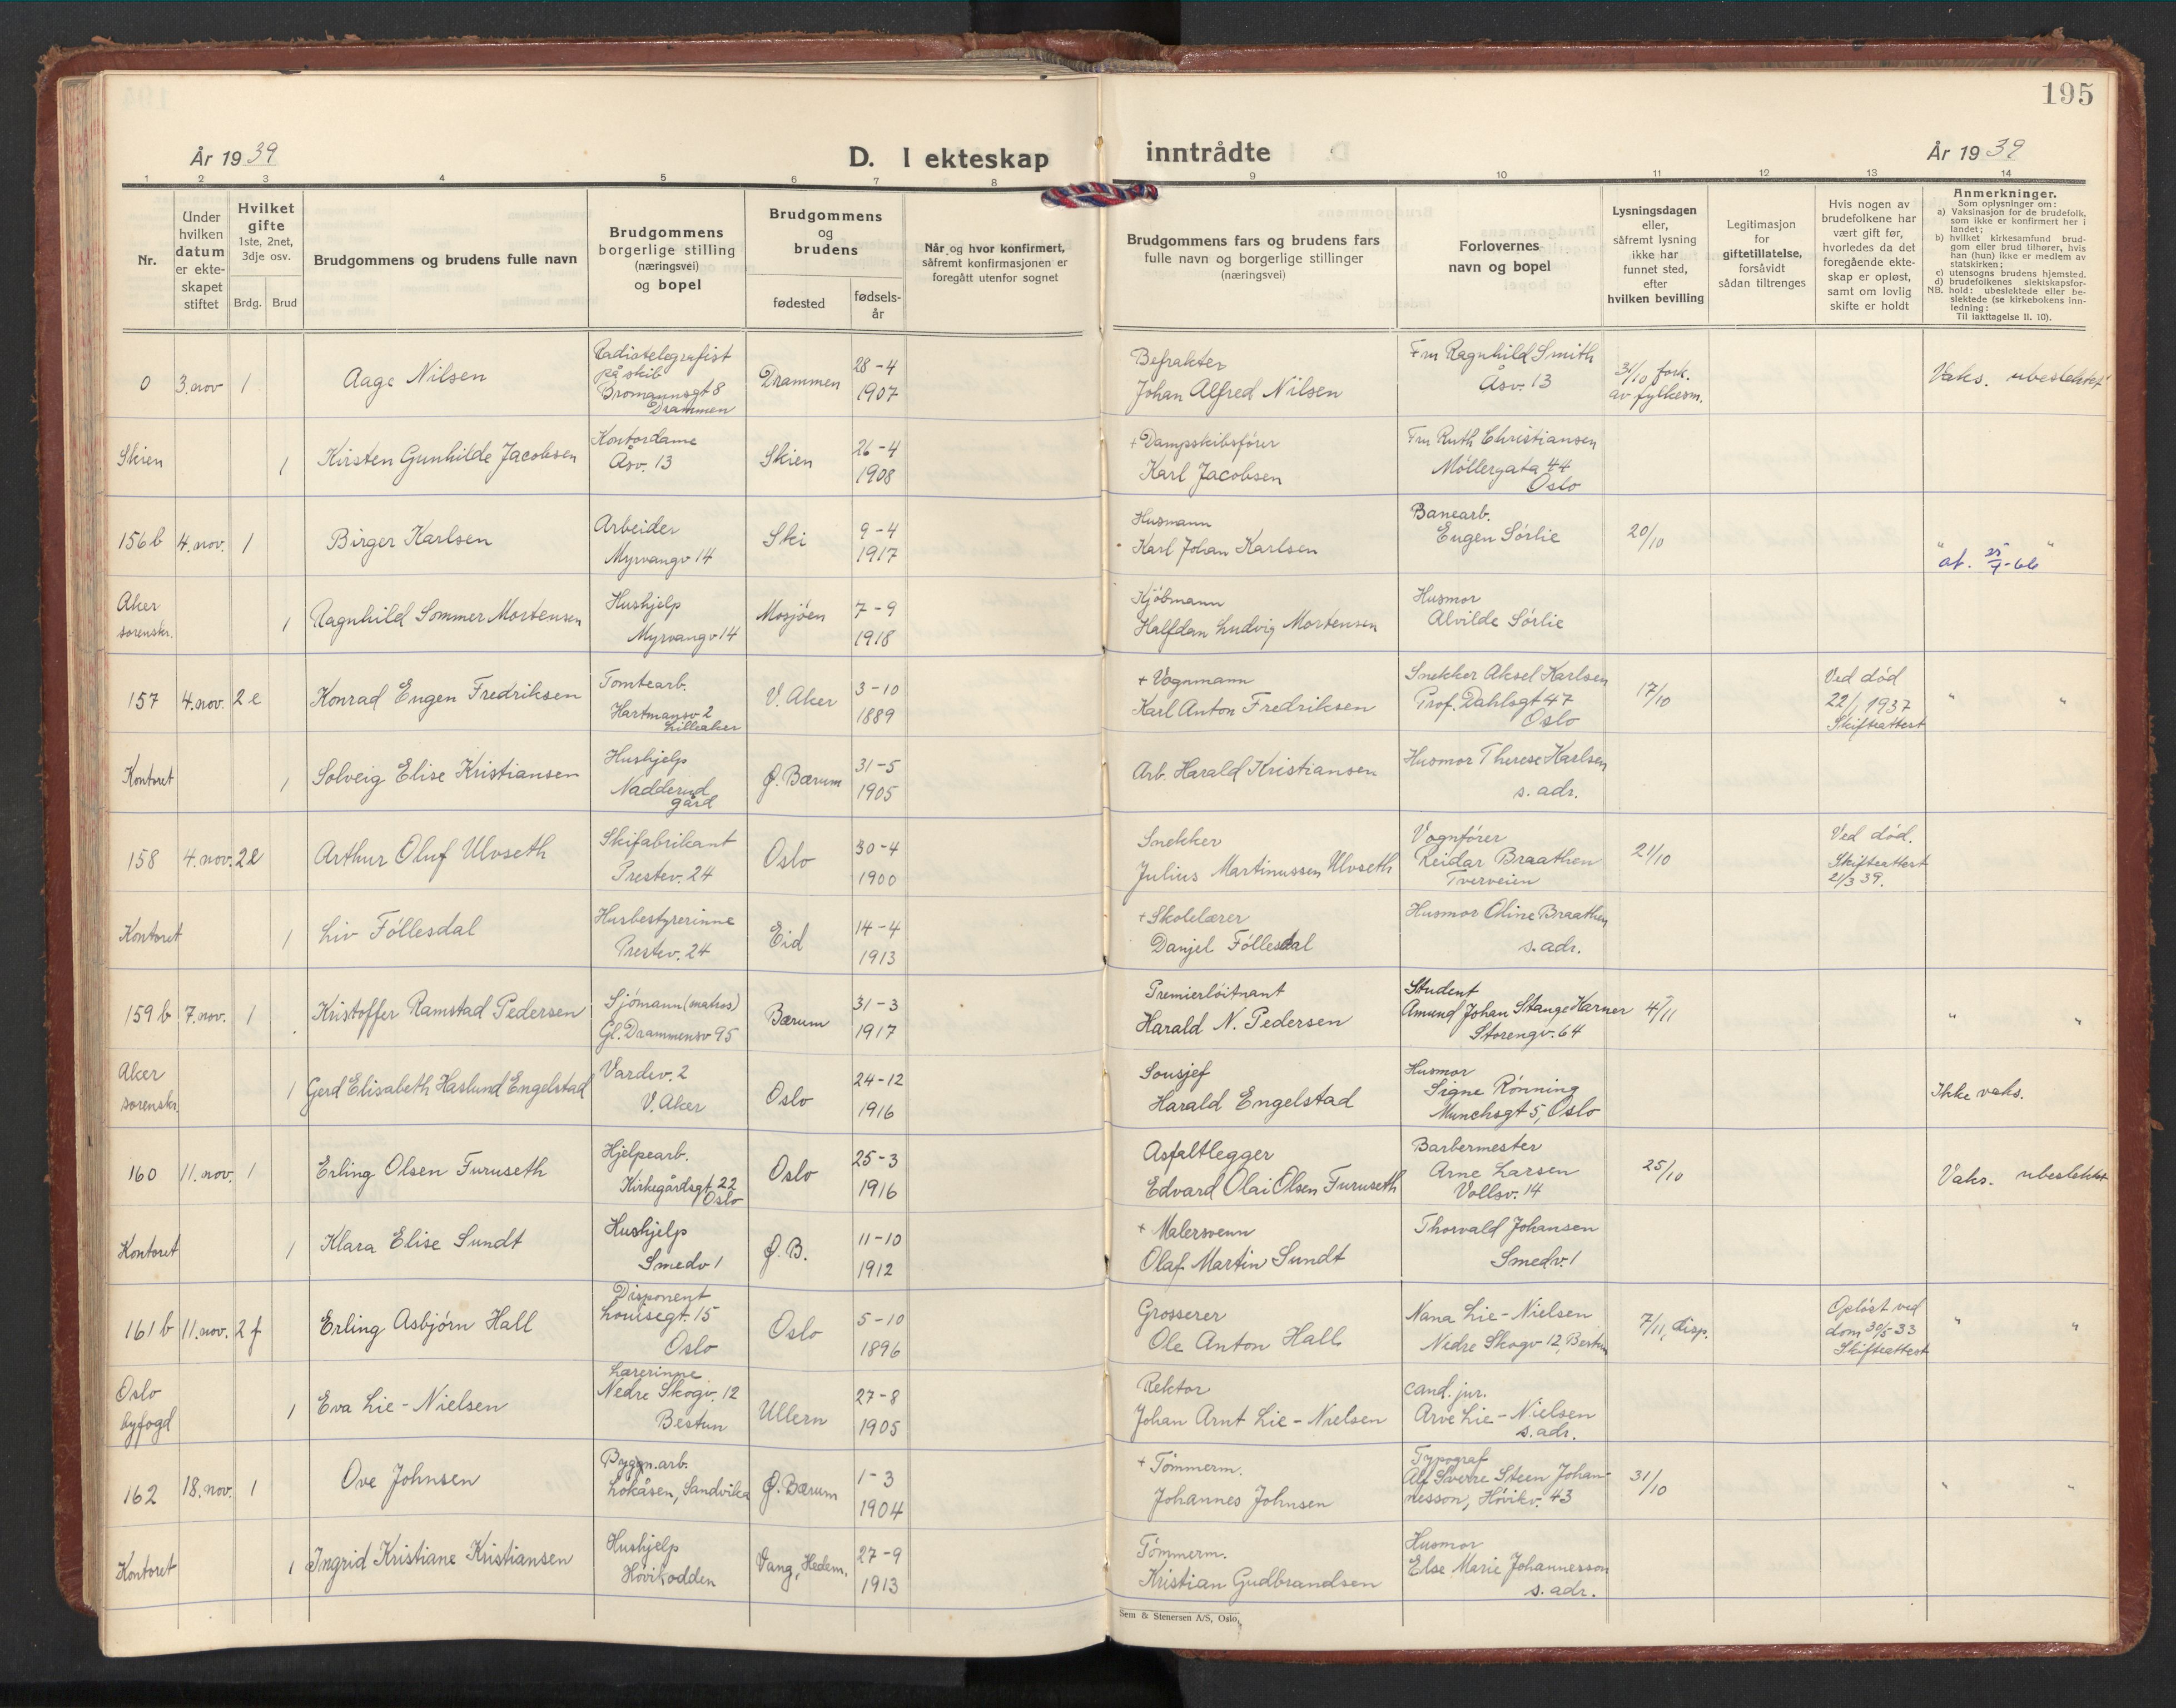 195
År 1939
D. I ekteskap inntrådte
År 1939
1 2 3 4 5 6 7 8 9 10 11 12 13 14
Nr.
Under hvilken datum er ekteskapet stiftet
Hvilket gifte 1ste, 2net, 3dje osv.
Brdg. Brud
Brudgommens og brudens fulle navn
Brudgommens borgerlige stilling (næringsvei) og bopel
Brudgommens og brudens
fødested
fødselsår
Når og hvor konfirmert, såfremt konfirmasjonen er foregått utenfor sognet
Brudgommens fars og brudens fars fulle navn og borgerlige stillinger (næringsvei)
Forlovernes navn og bopel
Lysningsdagen eller, såfremt lysning ikke har funnet sted, efter hvilken bevilling
Legitimasjon for giftetillatelse, forsåvidt sådan tiltrenges
Hvis nogen av brudefolkene har vært gift før, hvorledes da det foregående ekteskap er opløst, samt om lovlig skifte er holdt
Anmerkninger.
Som oplysninger om:
a) Vaksinasjon for de brudefolk, som ikke er konfirmert her i landet;
b) hvilket kirkesamfund brudgom eller brud tilhører, hvis han (hun) ikke er medlem av statskirken;
c) utensogns brudens hjemsted.
d) brudefolkenes slektskapsforhold: ubeslektede eller beslektede (se kirkebokens innledning:
NB.
Til iakttagelse II. 10).
0 3. nov 1 Aage Nilsen Radiotelegrafist på skib Bromannsgt 8 Drammen Drammen 28-4 1907 Befrakter Johan Alfred Nilsen Fru Ragnhild Smith Åsv. 13 31/10 fork. av fylkesm. Vaks. ubeslektet
Skien 1 Kirsten Gunhilde Jacobsen Kontordame Åsv. 13 Skien 26-4 1908 + Dampskibsfører Karl Jacobsen Fru Ruth Christiansen Møllergata 44 Oslo
156 b 4. nov. 1 Birger Karlsen Arbeider Myrvangv 14 Ski 9-4 1917 Husmann Karl Johan Karlsen Banearb. Eugen Sørlie 20/10 " "
Aker sorenskr. 1 Ragnhild Sommer Mortensen Hushjelp Myrvangv 14 Mosjøen 7-9 1918 Kjøbmann Halfdan Ludvig Mortensen Husmor Alvilde Sørlie
157 4. nov. 2 e Konrad Eugen Fredriksen Tomtearb. Hartmansv 2 Lilleaker V. Aker 3-10 1889 + Vognmann Karl Anton Fredriksen Snekker Aksel Karlsen Prof. Dahlsgt 47 Oslo 17/10 Ved død 22/1 1937 Skifteattest " "
Kontoret 1 Solveig Elise Kristiansen Hushjelp Nadderud gård Ø. Bærum 31-5 1905 Arb. Harald Kristiansen Husmor Therese Karlsen s. adr.
158 4. nov. 2 e Arthur Oluf Ulvseth Skifabrikant Prestev. 24 Oslo 30-4 1900 Snekker Julius Martinussen Ulvseth Vognfører Reidar Braathen Tverveien 21/10 Ved død. Skifteattest 21/3 39.
Kontoret 1 Liv Føllesdal Husbestyrerinne Prestev. 24 Eid 14-4 1913 + Skolelærer Danjel Føllesdal Husmor Oline Braathen s. adr.
159 b 7. nov. 1 Kristoffer Ramstad Pedersen Sjømann (matros) Gl. Drammensv 95 Bærum 31-3 1917 Premierløitnant Harald N. Pedersen Student Amund Johan Stange Harner Storengv. 64 4/11 " "
Aker sorenskr. 1 Gerd Elisabeth Haslund Engelstad Vardev. 2 V. Aker Oslo 24-12 1916 Sousjef Harald Engelstad Husmor Signe Rønning Munchsgt 5, Oslo Ikke vaks.
160 11. nov. 1 Erling Olsen Furuseth Hjelpearb. Kirkegårdsgt. 22 Oslo Oslo 25-3 1916 Asfaltlegger Edvard Olai Olsen Furuseth Barbermester Arne Larsen Vollsv. 14 25/10 Vaks. ubeslektet
Kontoret 1 Klara Elise Sundt Hushjelp Smedv 1 Ø. B. 11-10 1912 + Malersvenn Olaf Martin Sundt Thorvald Johansen Smedv. 1
161 b 11. nov. 2 f Erling Asbjørn Hall Disponent Louisegt. 15 Oslo Oslo 5-10 1896 Grosserer Ole Anton Hall Nana Lie-Nielsen Nedre Skogv 12, Bestun 7/11, disp. Opløst ved dom 30/5 33 Skifteattest " "
Oslo byfogd 1 Eva Lie-Nielsen Lærerinne Nedre Skogv. 12 Bestun Ullern 27-8 1905 Rektor Johan Arnt Lie-Nielsen cand. jur. Arve Lie-Nielsen s. adr.
162 18. nov. 1 Ove Johnsen Byggn.arb. Løkåsen, Sandvika Ø. Bærum 1-3 1904 + Tømmerm. Johannes Johnsen Typograf Alf Sverre Steen Johannesson, Høvikv. 43 31/10 " "
Kontoret 1 Ingrid Kristiane Kristiansen Hushjelp Høvikodden Vang, Hedem. 27-9 1913 Tømmerm. Kristian Gudbrandsen Husmor Else Marie Johannesson s. adr.
Sem & Stenersen A/S, Oslo.